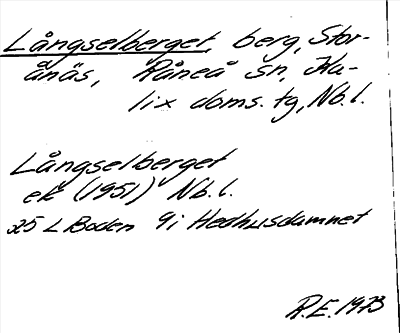 Långselberget, berg, Stor-
ånäs, Råneå sn, Ka-
lix doms. tg, Nb.l.
Långselberget
ek (1951) Nb.l.
25 L Boden 9i Hedhusdamnet
R.E. 1973